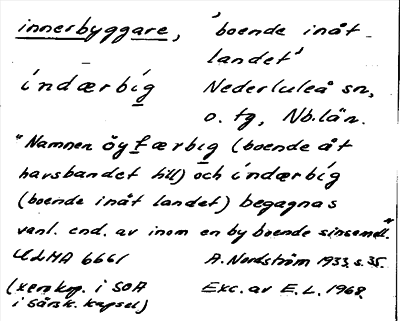 innerbyggare, 'boende inåt
landet'
índærbíg Nederluleå sn,
o. tg, Nb. län.
"Namnen öytærbig (boende åt
havsbandet till) och índærbíg
(boende inåt landet) begagnas
vanl. end. av inom en by boende sinsemell."
ULMA 6661 A. Nordström 1933. s. 35.
(xerokop. i SOA Exc. av E. L. 1968.
i särsk. kapsel)